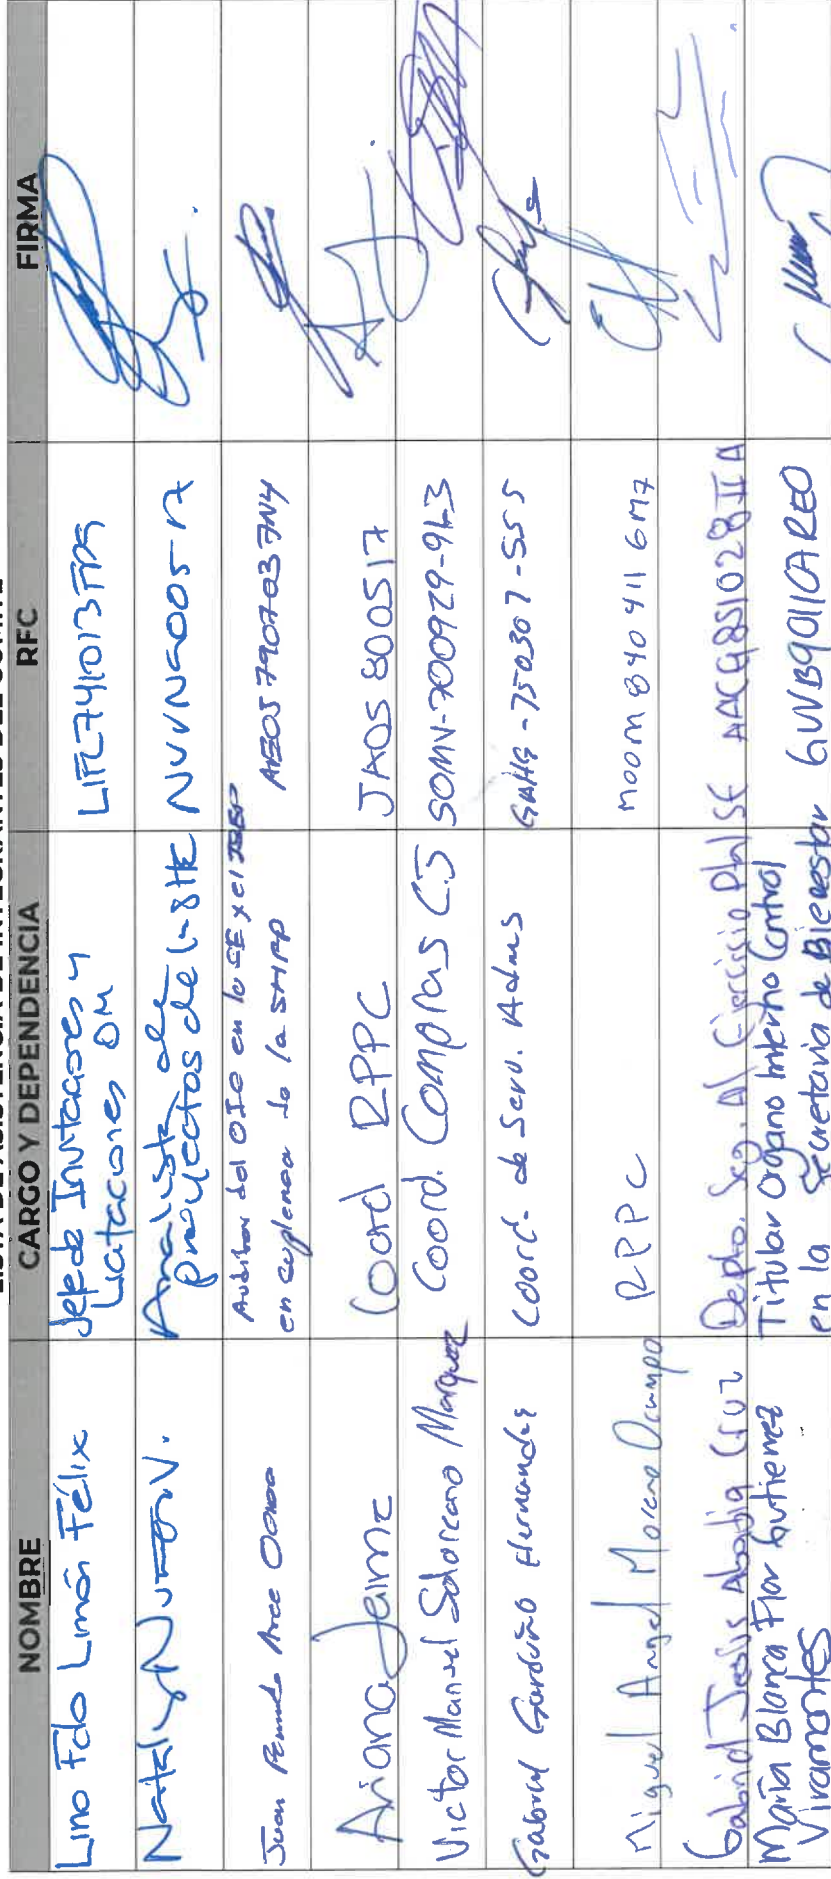 LISTA DE ASISTENCIA DE INTEGRANTES DEL COMITÉ
NOMBRE CARGO Y DEPENDENCIA RFC FIRMA
Lino Fdo Limón Félix Jefe de Invitaciones y
Licitaciones OM LIFL741013
Nataly N V. Analista de
proyectos de la SHE
Juan Arce Auditor del OIC en la SE y el
en suplencia de la SMADS
Ariana Jaime Coord RPPC JAOS 800517
Victor Manuel Solorzano Marquez Coord. Compras C.J SOMV-700929-9L3
Gabriel Garduño Hernandez Coord. de Serv. Admvs GAHG-750307-555
Miguel Angel Moreno Ocampo RPPC MOOM 840411 6M7
Gabriel Jesús Abadia Cruz Depto. Seg. Al Ejercicio Ptal SE AACG851028IIA
María Blanca Flor Gutierrez
Viramontes Titular Organo Interno Control
en la Secretaria de Bienestar GUVB9011